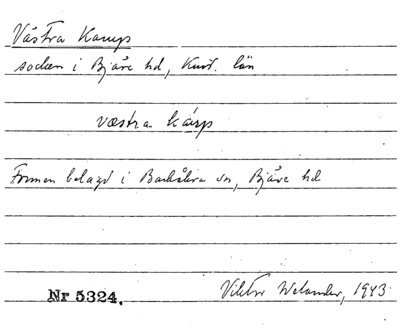 Västra Karup
socken i Bjäre hd, Krist. län
væstra kárp
Formen belagd i Barkåkra sn, Bjäre hd
Nr 5324.
Viktor Welander, 1943